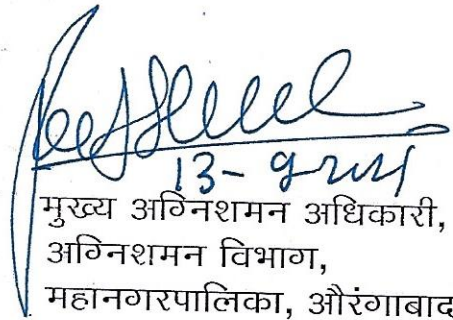 मुख्य अग्निशमन अधिकारी,
अग्निशमन विभाग,
महानगरपालिका, औरंगाबाद